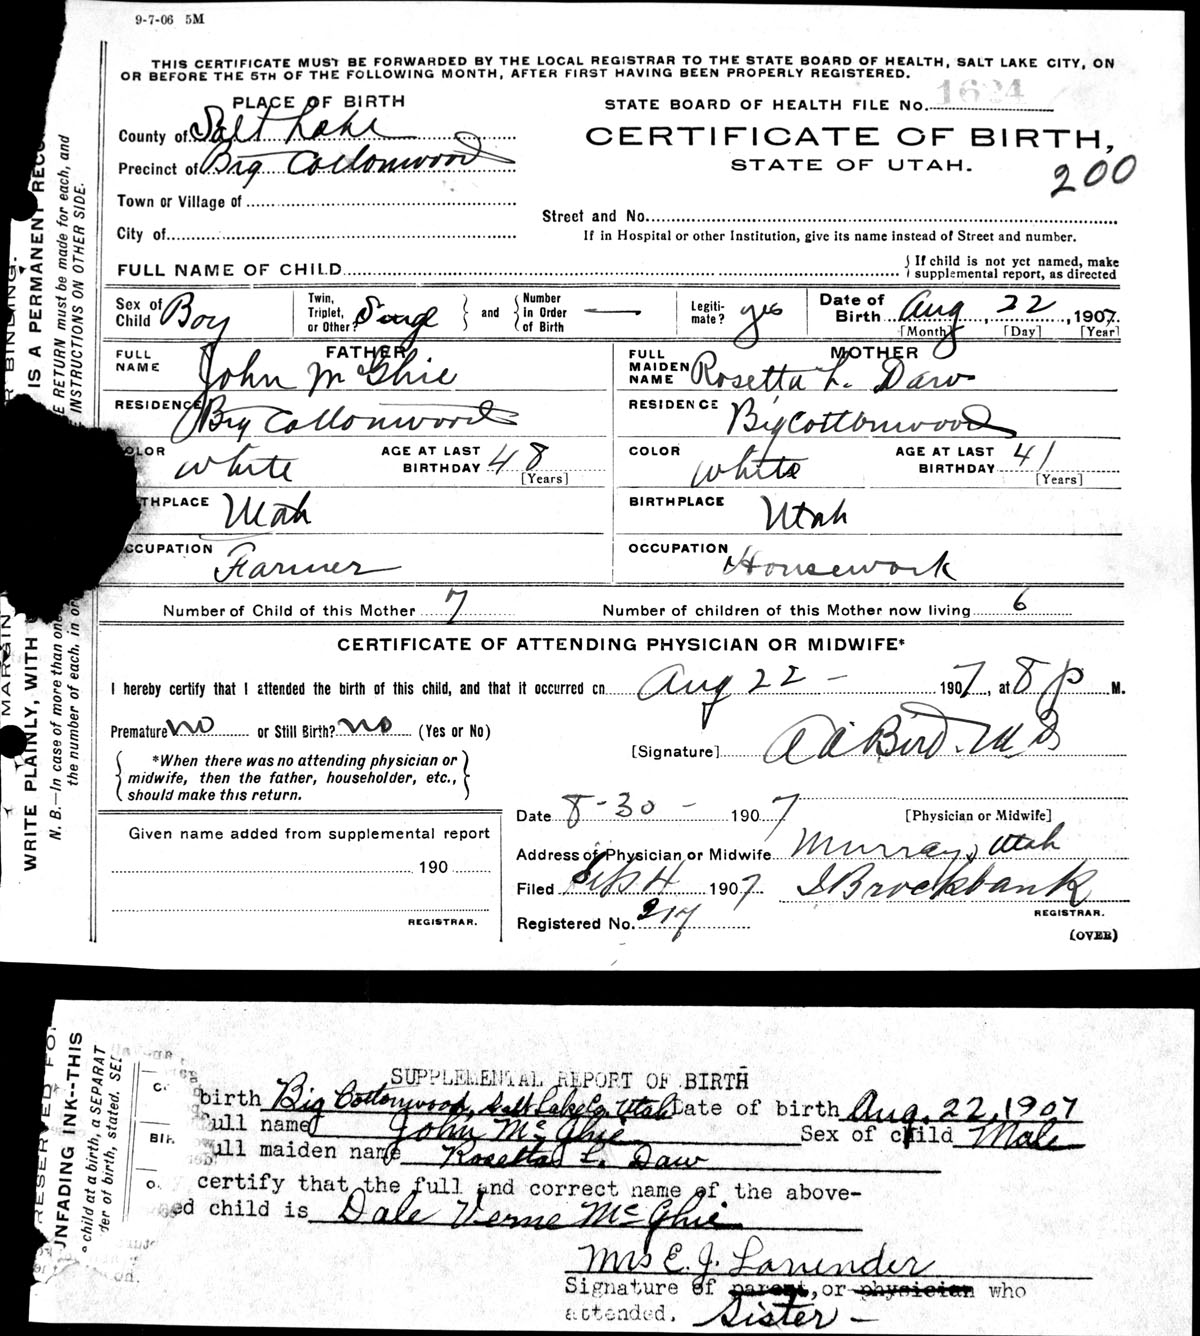 9-7-06 5M
THIS CERTIFICATE MUST BE FORWARDED BY THE LOCAL REGISTRAR TO THE STATE BOARD OF HEALTH, SALT LAKE CITY, ON
OR BEFORE THE 5TH OF THE FOLLOWING MONTH, AFTER FIRST HAVING BEEN PROPERLY REGISTERED.
PLACE OF BIRTH
STATE BOARD OF HEALTH FILE NO. 1624
County of Salt Lake
CERTIFICATE OF BIRTH,
Precinct of Big Cottonwood
STATE OF UTAH.
200
Town or Village of
Street and No.
City of
If in Hospital or other Institution, give its name instead of Street and number.
FULL NAME OF CHILD
If child is not yet named, make
supplemental report, as directed
Sex of Child Boy
Twin, Triplet, or Other? Single and Number in Order of Birth —
Legiti-mate? yes
Date of Birth Aug 22, 1907
[Month] [Day] [Year]
FATHER
FULL NAME John McGhie
MOTHER
FULL MAIDEN NAME Rosetta L. Daw
RESIDENCE Big Cottonwood
RESIDENCE Big Cottonwood
COLOR White AGE AT LAST BIRTHDAY 48 [Years]
COLOR White AGE AT LAST BIRTHDAY 41 [Years]
THPLACE Utah
BIRTHPLACE Utah
CCUPATION Farmer
OCCUPATION Housework
Number of Child of this Mother 7 Number of children of this Mother now living 6
CERTIFICATE OF ATTENDING PHYSICIAN OR MIDWIFE*
I hereby certify that I attended the birth of this child, and that it occurred on Aug 22 - 1907, at 8 p M.
Premature no or Still Birth? no (Yes or No)
[Signature] Bird. M D
*When there was no attending physician or
midwife, then the father, householder, etc.,
should make this return.
Date 8-30- 1907
[Physician or Midwife]
Given name added from supplemental report
190
REGISTRAR.
Address of Physician or Midwife Murray, Utah
Filed Sept 4 1907 Brockbank
REGISTRAR.
Registered No. 217
(OVER)
MARGIN
WRITE PLAINLY, WITH
IS A PERMANENT RECO
N. B.—In case of more than one
RETURN must be made for each, and
the number of each, in or
INSTRUCTIONS ON OTHER SIDE.
SUPPLEMENTAL REPORT OF BIRTH
birth Big Cottonwood, Salt Lake Co. Utah Date of birth Aug. 22, 1907
ull name John McGhie Sex of child Male
ull maiden name Rosetta L. Daw
certify that the full and correct name of the above-
ed child is Dale Verne McGhie
Mrs E. J. Lavender
Signature of parent, or physician who
attended. Sister -
RESERVED FO
UNFADING INK--THIS
child at a birth, a SEPARAT
der of birth, stated. SEE